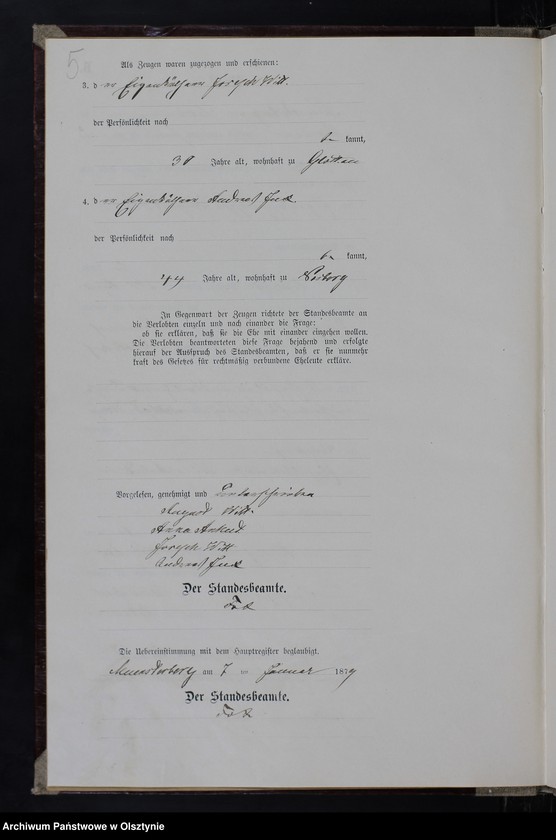 5
Als Zeugen waren zugezogen und erschienen:
3. der Eigenkäthner Joseph Witt.
der Persönlichkeit nach
be kannt,
38 Jahre alt, wohnhaft zu Glottau
4. der Eigenkäthner Andreas
der Persönlichkeit nach
be kannt,
44 Jahre alt, wohnhaft zu
In Gegenwart der Zeugen richtete der Standesbeamte an
die Verlobten einzeln und nach einander die Frage:
ob sie erklären, daß sie die Ehe mit einander eingehen wollen.
Die Verlobten beantworteten diese Frage bejahend und erfolgte
hierauf der Ausspruch des Standesbeamten, daß er sie nunmehr
kraft des Gesetzes für rechtmäßig verbundene Eheleute erkläre.
Vorgelesen, genehmigt und unterschrieben
August Witt.
Anna
Joseph Witt
Andreas
Der Standesbeamte.
Die Uebereinstimmung mit dem Hauptregister beglaubigt.
Muensterberg am 7 ten Januar 1879
Der Standesbeamte.
Archiwum Państwowe w Olsztynie